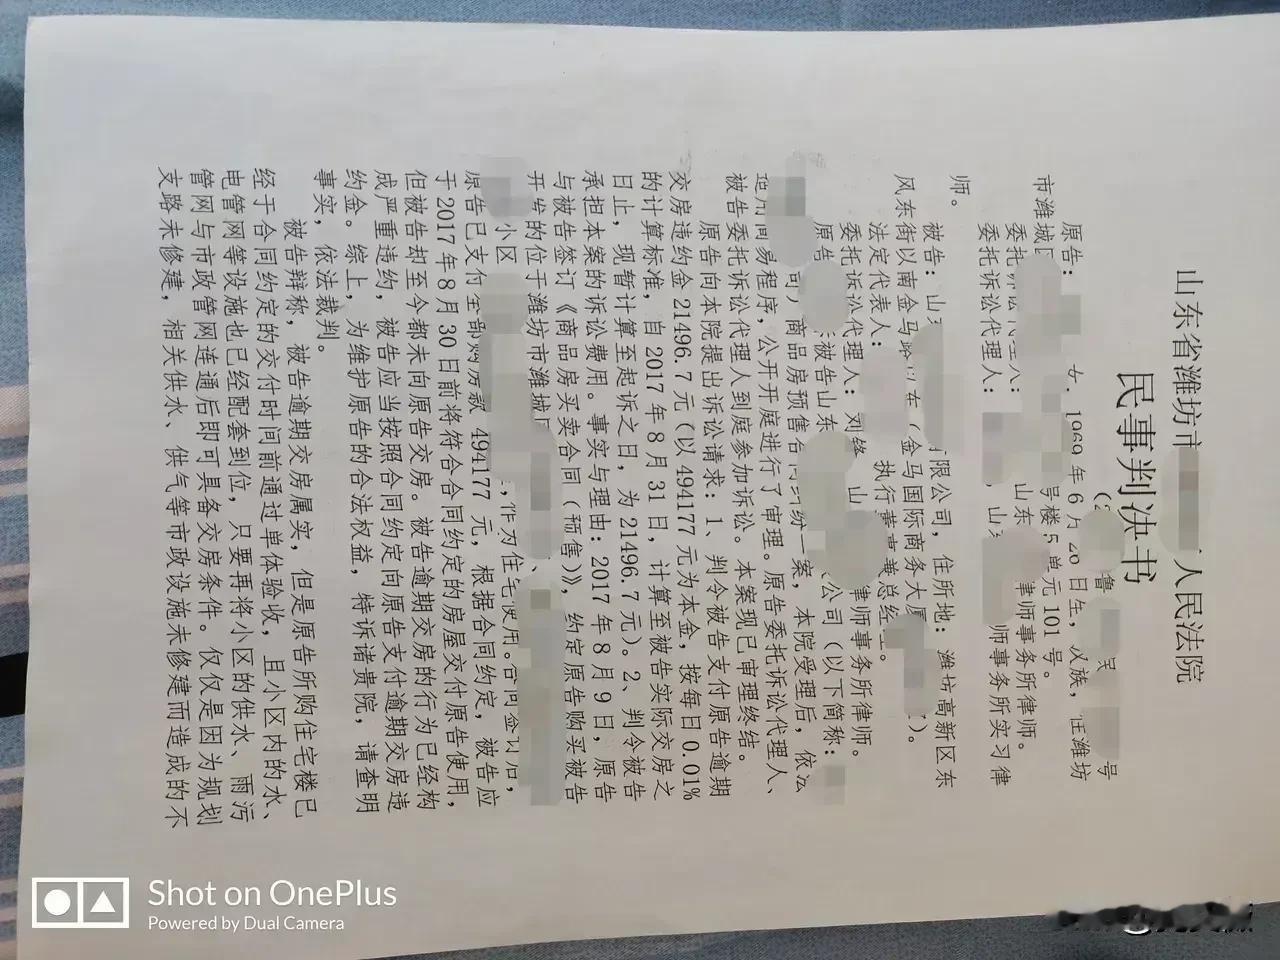 山东省潍坊市 人民法院
民事判决书
(2 鲁 民 号
原告： 女，1969年6月20日生，汉族，住潍坊
市潍城区 号楼5单元101号。
委托诉讼代理人： 山东 律师事务所律师。
委托诉讼代理人： ，山东 师事务所实习律
师。
被告：山东 有限公司，住所地：潍坊高新区东
风东街以南金马路 东（金马国际商务大厦 ）。
法定代表人： 执行董事兼总经理。
委托诉讼代理人：刘锋 山 律师事务所律师。
原告 被告山东 公司（以下简称：
司）商品房预售合同纠纷一案，本院受理后，依法
适用简易程序，公开开庭进行了审理。原告委托诉讼代理人、
被告委托诉讼代理人到庭参加诉讼。本案现已审理终结。
原告向本院提出诉讼请求：1、判令被告支付原告逾期
交房违约金21496.7元（以494177元为本金，按每日0.01%
的计算标准，自2017年8月31日，计算至被告实际交房之
日止，现暂计算至起诉之日，为21496.7元）。2、判令被告
承担本案的诉讼费用。事实与理由：2017年8月9日，原告
与被告签订《商品房买卖合同（预售）》，约定原告购买被告
开发的位于潍坊市潍城区 、
小区 ，作为住宅使用。合同签订后，
原告已支付全部购房款494177元，根据合同约定，被告应
于2017年8月30日前将符合合同约定的房屋交付原告使用，
但被告却至今都未向原告交房。被告逾期交房的行为已经构
成严重违约，被告应当按照合同约定向原告支付逾期交房违
约金。综上，为维护原告的合法权益，特诉诸贵院，请查明
事实，依法裁判。
被告辩称，被告逾期交房属实，但是原告所购住宅楼已
经于合同约定的交付时间前通过单体验收，且小区内的水、
电管网等设施也已经配套到位，只要再将小区的供水、雨污
管网与市政管网连通后即可具备交房条件。仅仅是因为规划
支路未修建，相关供水、供气等市政设施未修建而造成的不
Shot on OnePlus
Powered by Dual Camera